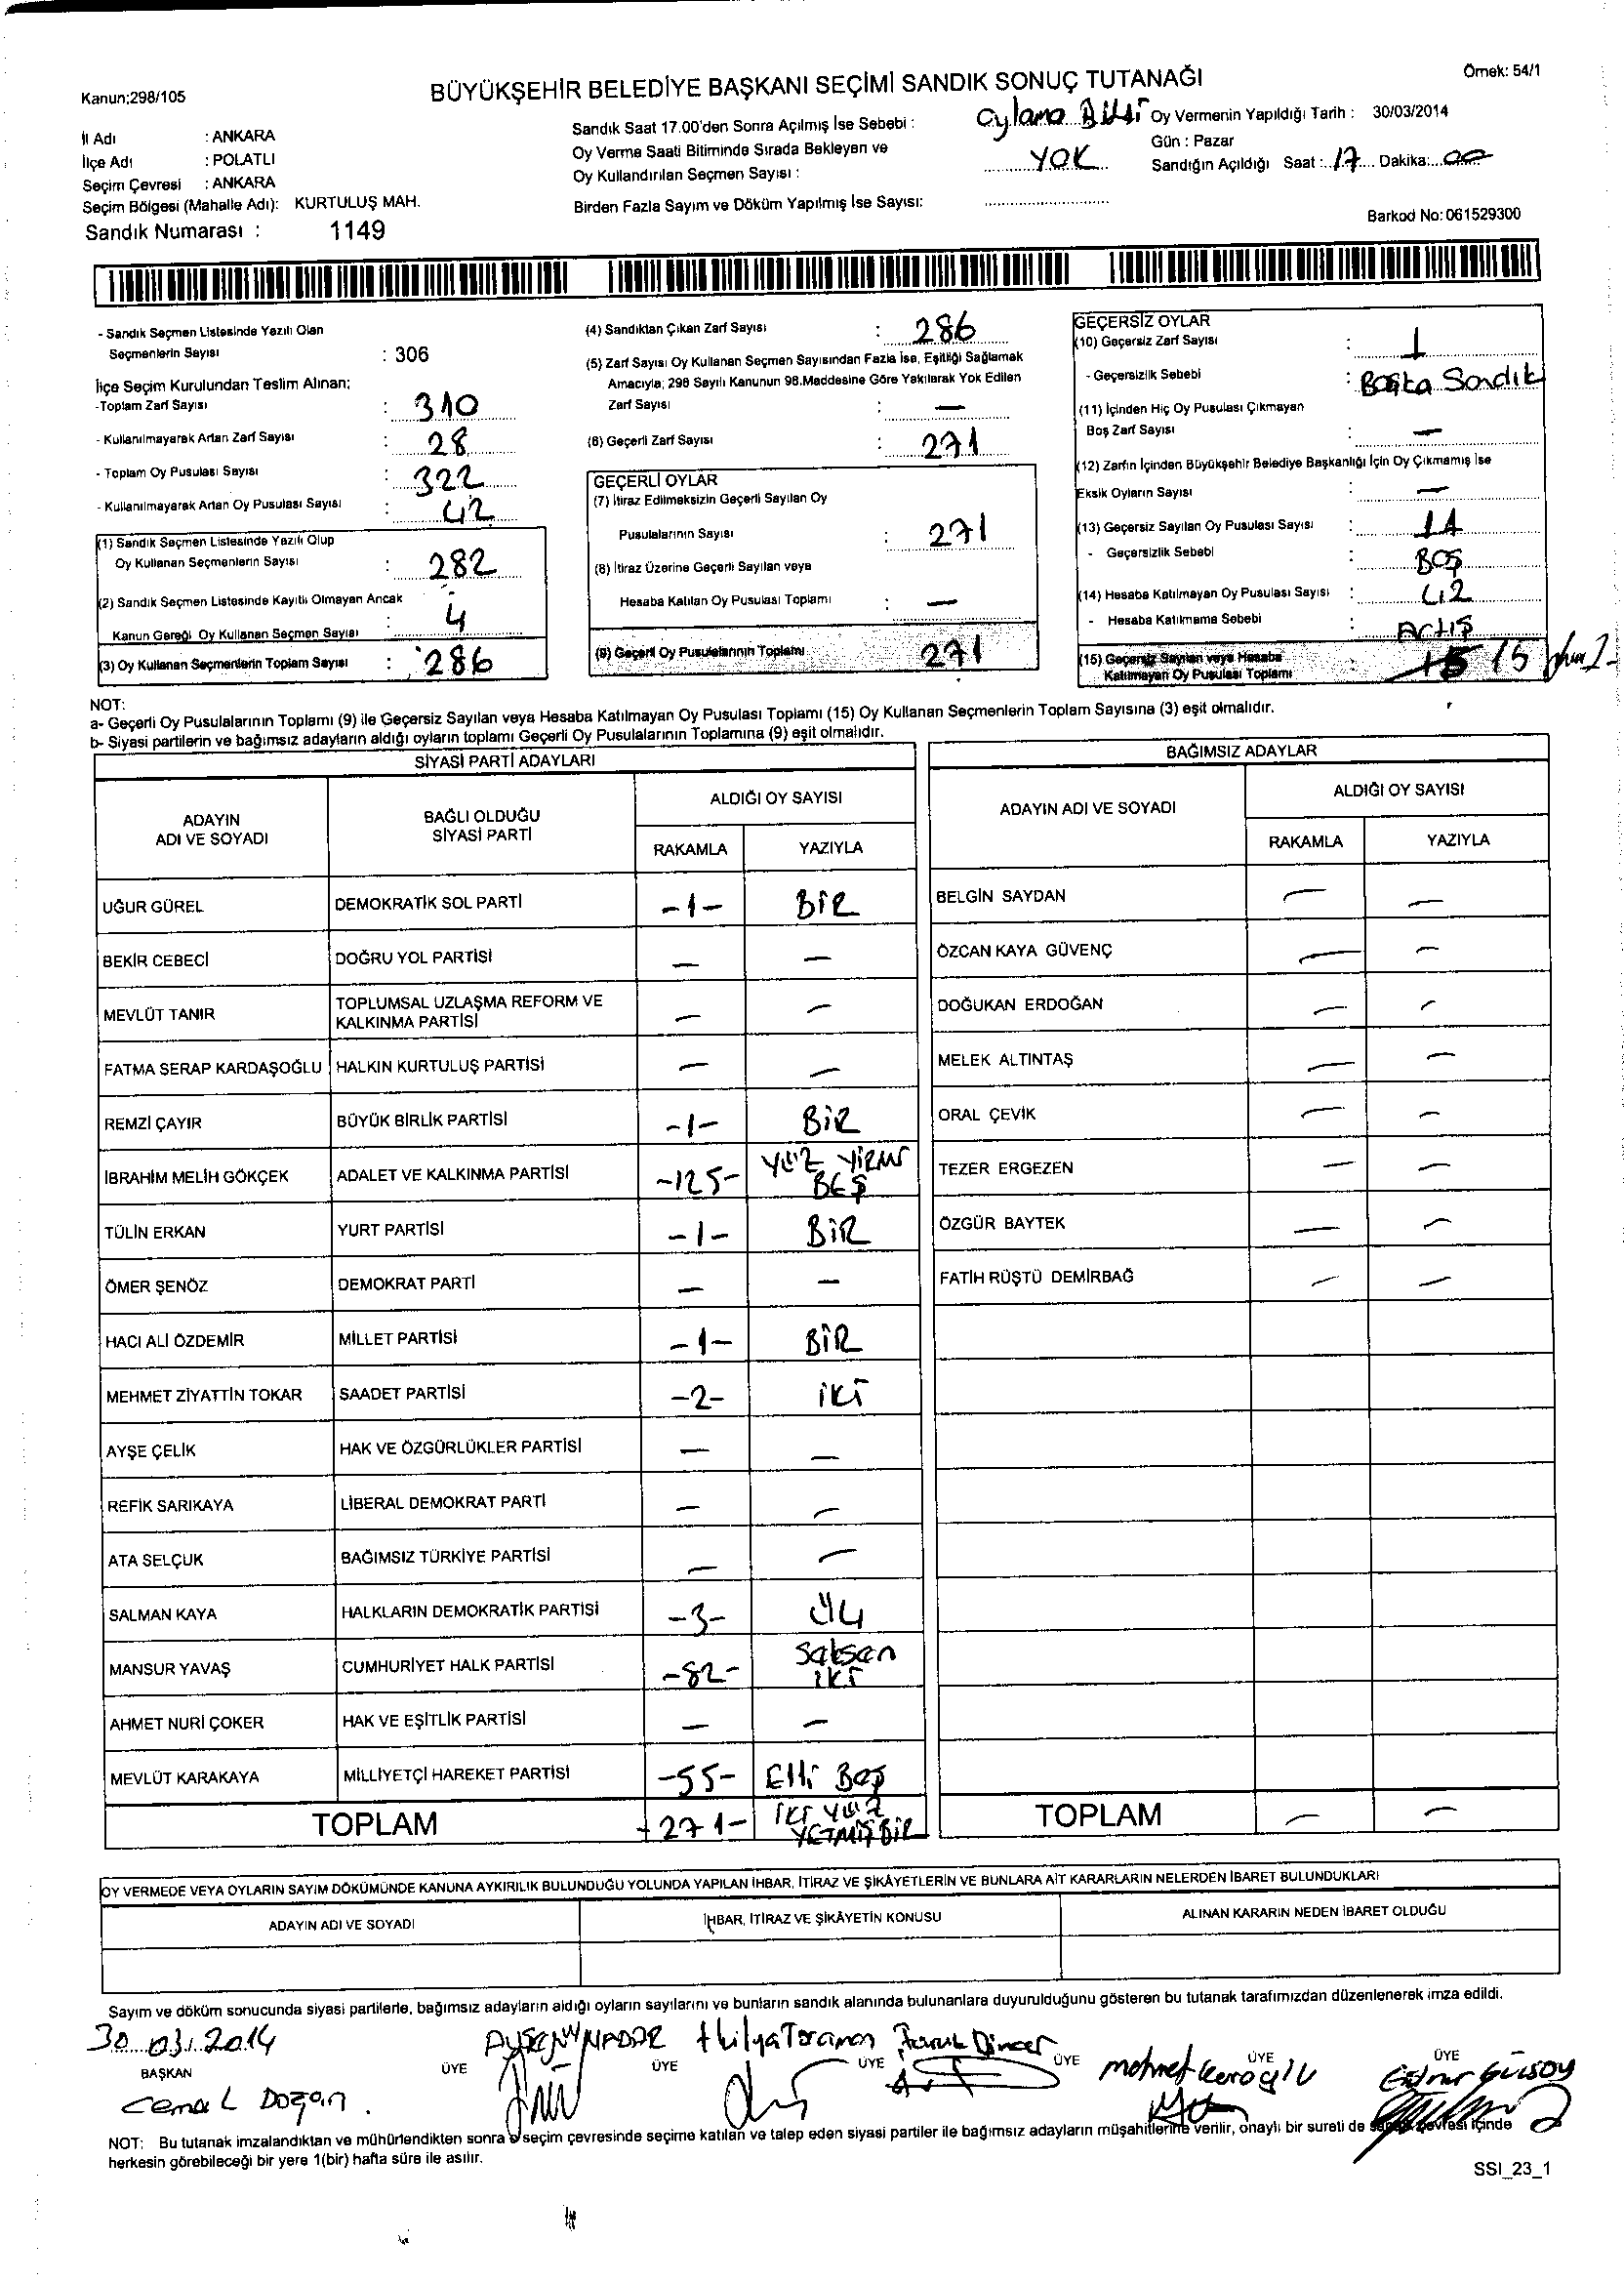 Kanun;298/105
BÜYÜKŞEHİR BELEDİYE BAŞKANI SEÇİMİ SANDIK SONUÇ TUTANAĞI
Örnek: 54/1
İl Adı : ANKARA
İlçe Adı : POLATLI
Seçim Çevresi : ANKARA
Seçim Bölgesi (Mahalle Adı): KURTULUŞ MAH.
Sandık Numarası : 1149
Sandık Saat 17.00'den Sonra Açılmış İse Sebebi :
Oy Verme Saati Bitiminde Sırada Bekleyen ve
Oy Kullandırılan Seçmen Sayısı : YOK
Birden Fazla Sayım ve Döküm Yapılmış İse Sayısı:
Oy Vermenin Yapıldığı Tarih : 30/03/2014
Gün : Pazar
Sandığın Açıldığı Saat : 17 Dakika: 00
Barkod No: 061529300
- Sandık Seçmen Listesinde Yazılı Olan
Seçmenlerin Sayısı : 306
İlçe Seçim Kurulundan Teslim Alınan:
-Toplam Zarf Sayısı : 310
- Kullanılmayarak Artan Zarf Sayısı : 28
- Toplam Oy Pusulası Sayısı : 322
- Kullanılmayarak Artan Oy Pusulası Sayısı : 42
(1) Sandık Seçmen Listesinde Yazılı Olup
Oy Kullanan Seçmenlerin Sayısı : 282
(2) Sandık Seçmen Listesinde Kayıtlı Olmayan Ancak
Kanun Gereği Oy Kullanan Seçmen Sayısı : 4
(3) Oy Kullanan Seçmenlerin Toplam Sayısı : 286
(4) Sandıktan Çıkan Zarf Sayısı : 286
(5) Zarf Sayısı Oy Kullanan Seçmen Sayısından Fazla İse, Eşitliği Sağlamak
Amacıyla; 298 Sayılı Kanunun 98.Maddesine Göre Yakılarak Yok Edilen
Zarf Sayısı : —
(6) Geçerli Zarf Sayısı : 271
GEÇERLİ OYLAR
(7) İtiraz Edilmeksizin Geçerli Sayılan Oy
Pusulalarının Sayısı : 271
(8) İtiraz Üzerine Geçerli Sayılan veya
Hesaba Katılan Oy Pusulası Toplamı : —
(9) Geçerli Oy Pusulalarının Toplamı 271
GEÇERSİZ OYLAR
(10) Geçersiz Zarf Sayısı : 1
- Geçersizlik Sebebi : Başka Sandık
(11) İçinden Hiç Oy Pusulası Çıkmayan
Boş Zarf Sayısı : —
(12) Zarfın İçinden Büyükşehir Belediye Başkanlığı İçin Oy Çıkmamış İse
Eksik Oyların Sayısı : —
(13) Geçersiz Sayılan Oy Pusulası Sayısı : 14
- Geçersizlik Sebebi : BOŞ
(14) Hesaba Katılmayan Oy Pusulası Sayısı : 42
- Hesaba Katılmama Sebebi : Artış
(15) Geçersiz Sayılan veya Hesaba
Katılmayan Oy Pusulası Toplamı 15 15
NOT:
a- Geçerli Oy Pusulalarının Toplamı (9) ile Geçersiz Sayılan veya Hesaba Katılmayan Oy Pusulası Toplamı (15) Oy Kullanan Seçmenlerin Toplam Sayısına (3) eşit olmalıdır.
b- Siyasi partilerin ve bağımsız adayların aldığı oyların toplamı Geçerli Oy Pusulalarının Toplamına (9) eşit olmalıdır.
SİYASİ PARTİ ADAYLARI
ADAYIN ADI VE SOYADI
BAĞLI OLDUĞU SİYASİ PARTİ
ALDIĞI OY SAYISI
RAKAMLA YAZIYLA
UĞUR GÜREL DEMOKRATİK SOL PARTİ -1- BİR
BEKİR CEBECİ DOĞRU YOL PARTİSİ — —
MEVLÜT TANIR TOPLUMSAL UZLAŞMA REFORM VE KALKINMA PARTİSİ — —
FATMA SERAP KARDAŞOĞLU HALKIN KURTULUŞ PARTİSİ — —
REMZİ ÇAYIR BÜYÜK BİRLİK PARTİSİ -1- BİR
İBRAHİM MELİH GÖKÇEK ADALET VE KALKINMA PARTİSİ -125- YÜZ YİRMİ BEŞ
TÜLİN ERKAN YURT PARTİSİ -1- BİR
ÖMER ŞENÖZ DEMOKRAT PARTİ — —
HACI ALİ ÖZDEMİR MİLLET PARTİSİ -1- BİR
MEHMET ZİYATTİN TOKAR SAADET PARTİSİ -2- İKİ
AYŞE ÇELİK HAK VE ÖZGÜRLÜKLER PARTİSİ — —
REFİK SARIKAYA LİBERAL DEMOKRAT PARTİ — —
ATA SELÇUK BAĞIMSIZ TÜRKİYE PARTİSİ — —
SALMAN KAYA HALKLARIN DEMOKRATİK PARTİSİ -3- Üç
MANSUR YAVAŞ CUMHURİYET HALK PARTİSİ -82- Seksen İKİ
AHMET NURİ ÇOKER HAK VE EŞİTLİK PARTİSİ — —
MEVLÜT KARAKAYA MİLLİYETÇİ HAREKET PARTİSİ -55- Elli Beş
TOPLAM -271- İKİ YÜZ YETMİŞ BİR
BAĞIMSIZ ADAYLAR
ADAYIN ADI VE SOYADI
ALDIĞI OY SAYISI
RAKAMLA YAZIYLA
BELGİN SAYDAN — —
ÖZCAN KAYA GÜVENÇ — —
DOĞUKAN ERDOĞAN — —
MELEK ALTINTAŞ — —
ORAL ÇEVİK — —
TEZER ERGEZEN — —
ÖZGÜR BAYTEK — —
FATİH RÜŞTÜ DEMİRBAĞ — —
TOPLAM — —
OY VERMEDE VEYA OYLARIN SAYIM DÖKÜMÜNDE KANUNA AYKIRILIK BULUNDUĞU YOLUNDA YAPILAN İHBAR, İTİRAZ VE ŞİKÂYETLERİN VE BUNLARA AİT KARARLARIN NELERDEN İBARET BULUNDUKLARI
ADAYIN ADI VE SOYADI İHBAR, İTİRAZ VE ŞİKÂYETİN KONUSU ALINAN KARARIN NEDEN İBARET OLDUĞU
Sayım ve döküm sonucunda siyasi partilerle, bağımsız adayların aldığı oyların sayılarını ve bunların sandık alanında bulunanlara duyurulduğunu gösteren bu tutanak tarafımızdan düzenlenerek imza edildi.
30.03.2014
BAŞKAN ÜYE ÜYE ÜYE ÜYE ÜYE ÜYE
Cemal Doğan
Faruk Dincer
NOT: Bu tutanak imzalandıktan ve mühürlendikten sonra o seçim çevresinde seçime katılan ve talep eden siyasi partiler ile bağımsız adayların müşahitlerine verilir, onaylı bir sureti de sandık çevresi içinde
herkesin görebileceği bir yere 1(bir) hafta süre ile asılır.
SSI_23_1